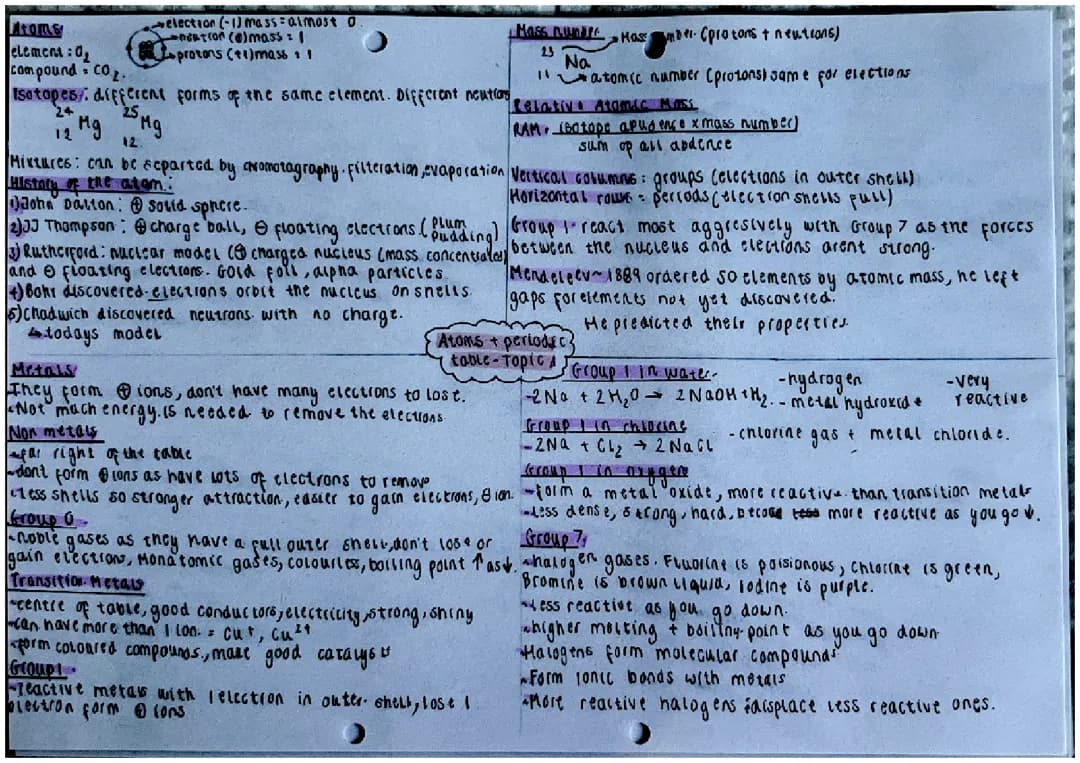 Atoms
electron (-1) mass = almost 0.
neutron (0) mass = 1
protons (+1) mass = 1
element : O2
compound = CO2.
Isotopes: different forms of the same element. Different neutrons
24 Mg 12 25 Mg 12
Mixtures: can be separted by chromotagraphy, filteration, evaporation
History of the atom:
1) John Dalton: ⊕ solid sphere.
2) JJ Thompson: ⊕ charge ball, ⊖ floating electrons. (Plum Pudding)
3) Rutherford: nuclear model (⊕ charged nucleus (mass concentrated)
and ⊖ floating electrons. Gold foil, alpha particles
4) Bohr discovered electrons orbit the nucleus on shells.
5) Chadwich discovered neutrons with no charge.
↳ todays model
Mass number
23 Na 11
Mass number (protons + neutrons)
atomic number (protons) same for electrons
Relative Atomic Mass
RAM = (isotope abudence x mass number)
sum of all abdence
Vertical columns : groups (electrons in outer shell)
Horizontal rows = periods (electron shells full)
Group 1 - react most aggresively with Group 7 as the forces
between the nucleus and electrons arent strong.
Mendeleev ~ 1889 ordered 50 elements by atomic mass, he left
gaps for elements not yet discovered.
He predicted their properties.
Atoms + periodic
table - Topic 1
Metals
They form ⊕ ions, don't have many electrons to lose.
Not much energy is needed to remove the electrons
Non metals
- far right of the table
- dont form ⊕ ions as have lots of electrons to remove
- Less shells so stronger attraction, easier to gain electrons, ⊖ ion.
Group 0
- noble gases as they have a full outer shell, don't lose or
gain electrons, Monatomic gases, colourless, boiling point ↑ as ↓.
Transition Metals
- centre of table, good conductors, electricity, strong, shiny
- can have more than 1 ion. = Cu+, Cu2+
- form coloured compounds, make good catalysts
Group 1
- reactive metals with 1 electron in outer shell, lose 1
electron form ⊕ ions
Group 1 in water
- 2Na + 2H2O → 2NaOH + H2.
- hydrogen
- metal hydroxide
- very reactive
Group 1 in chlorine
- 2Na + Cl2 → 2NaCl - chlorine gas + metal chloride.
Group 1 in oxygen
- form a metal oxide, more reactive than transition metals
- Less dense, strong, hard, become less more reactive as you go ↓.
Group 7
- halogen gases. Fluorine is poisionous, Chlorine is green,
Bromine is brown liquid, Iodine is purple.
- Less reactive as you go down.
- higher melting + boiling point as you go down
- Halogens form molecular compounds
- Form ionic bonds with metals
- More reactive halogens displace less reactive ones.